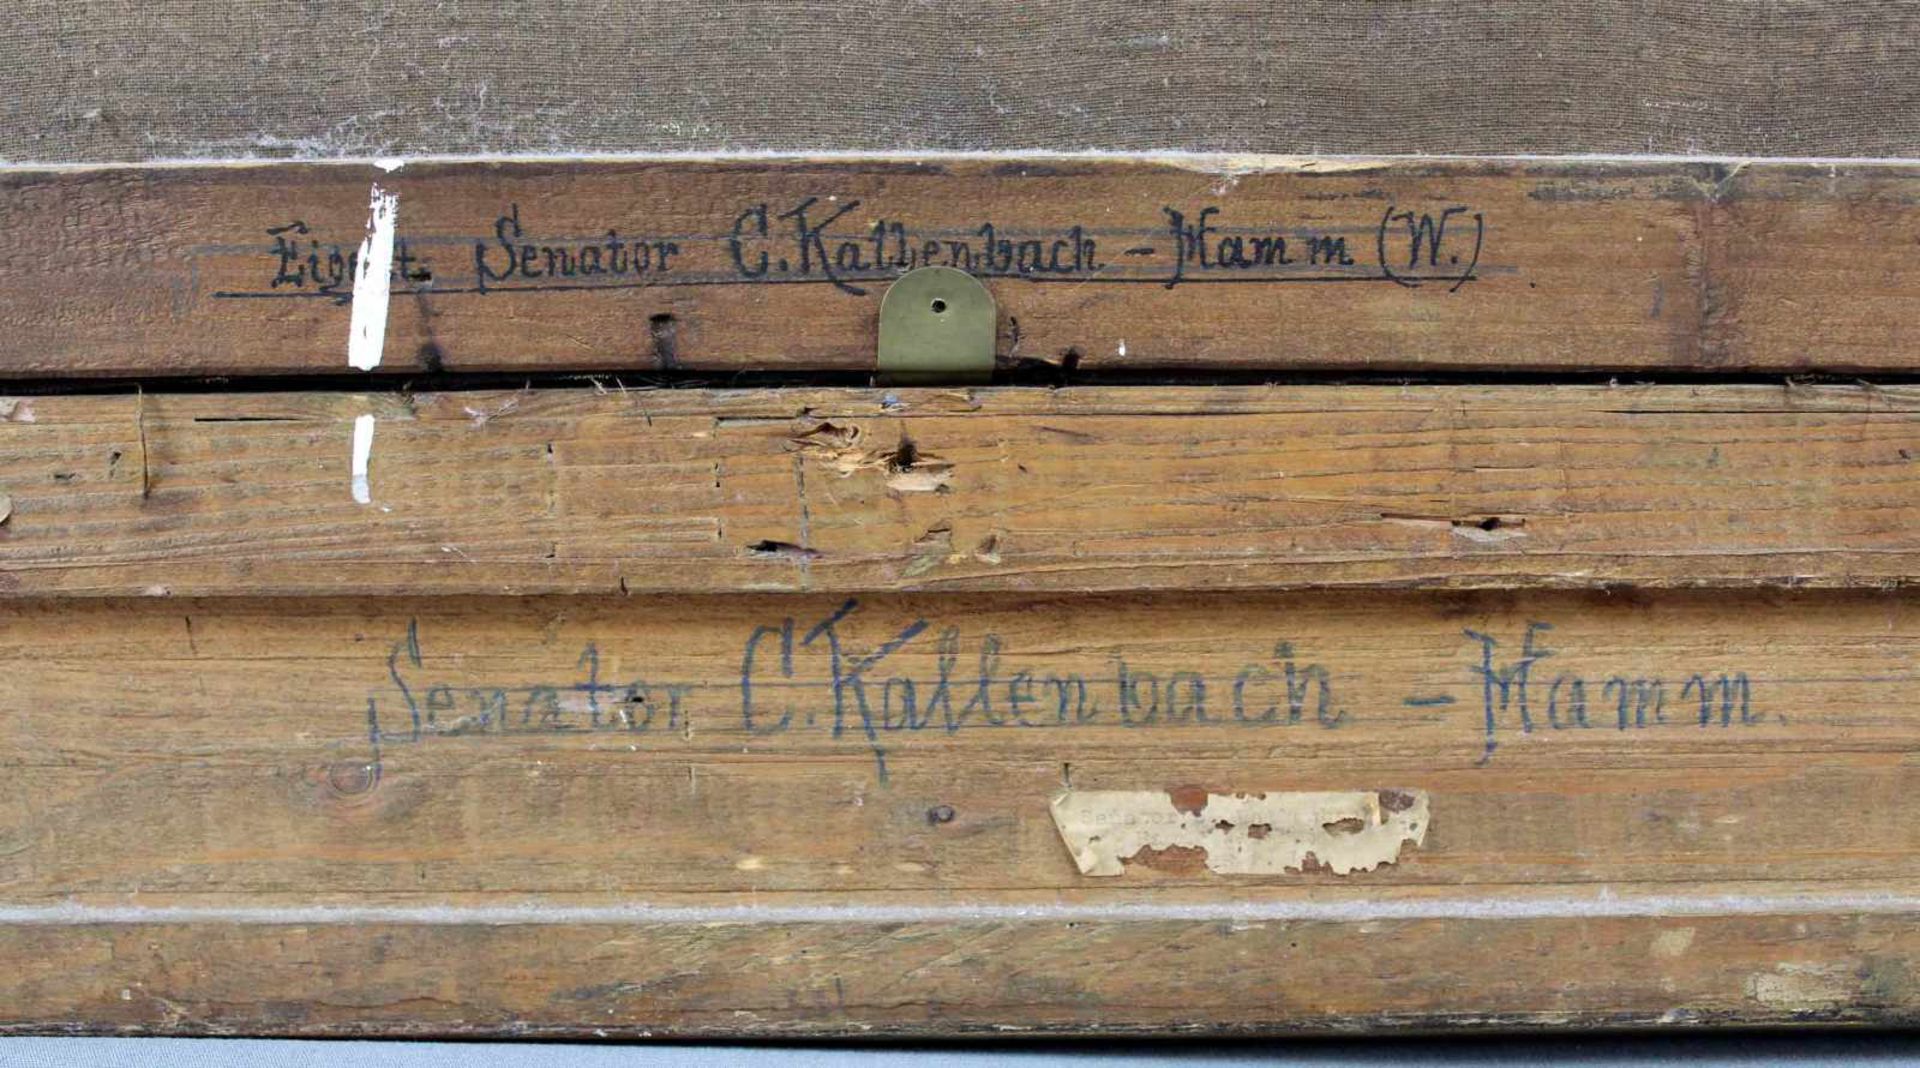 Eigent. Senator C. Kallenbach - Hamm (W.)
Senator C. Kallenbach - Hamm.
Senator